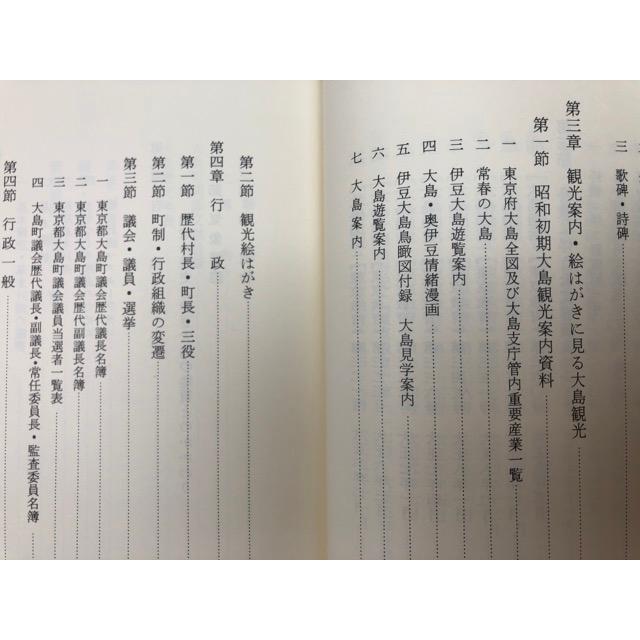 三 歌碑・詩碑
第三章 観光案内・絵はがきに見る大島観光
第一節 昭和初期大島観光案内資料
一 東京府大島全図及び大島支庁管内重要産業一覧
二 常春の大島
三 伊豆大島遊覧案内
四 大島・奥伊豆情緒漫画
五 伊豆大島鳥瞰図付録 大島見学案内
六 大島遊覧案内
七 大島案内
第二節 観光絵はがき
第四章 行 政
第一節 歴代村長・町長・三役
第二節 町制・行政組織の変遷
第三節 議会・議員・選挙
一 東京都大島町議会歴代議長名簿
二 東京都大島町議会歴代副議長名簿
三 東京都大島町議会議員当選者一覧表
四 大島町議会歴代議長・副議長・常任委員長・監査委員名簿
第四節 行政一般